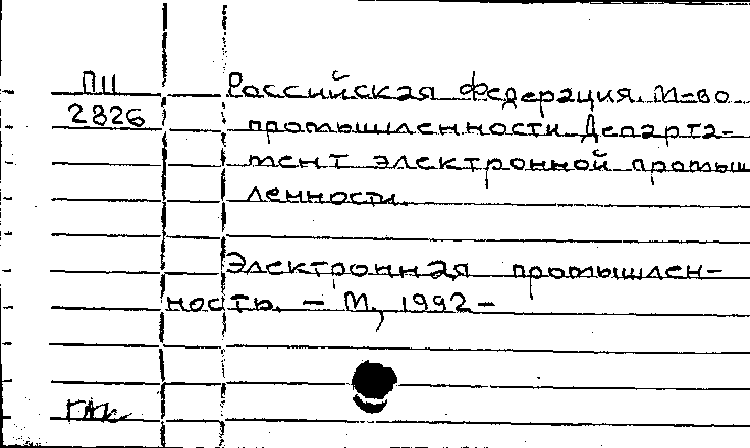 П11 Российская Федерация. М-во
2826 промышленности. Департа-
мент электронной промыш
ленности.
Электронная промышлен-
ность. – М., 1992 –
ГАК